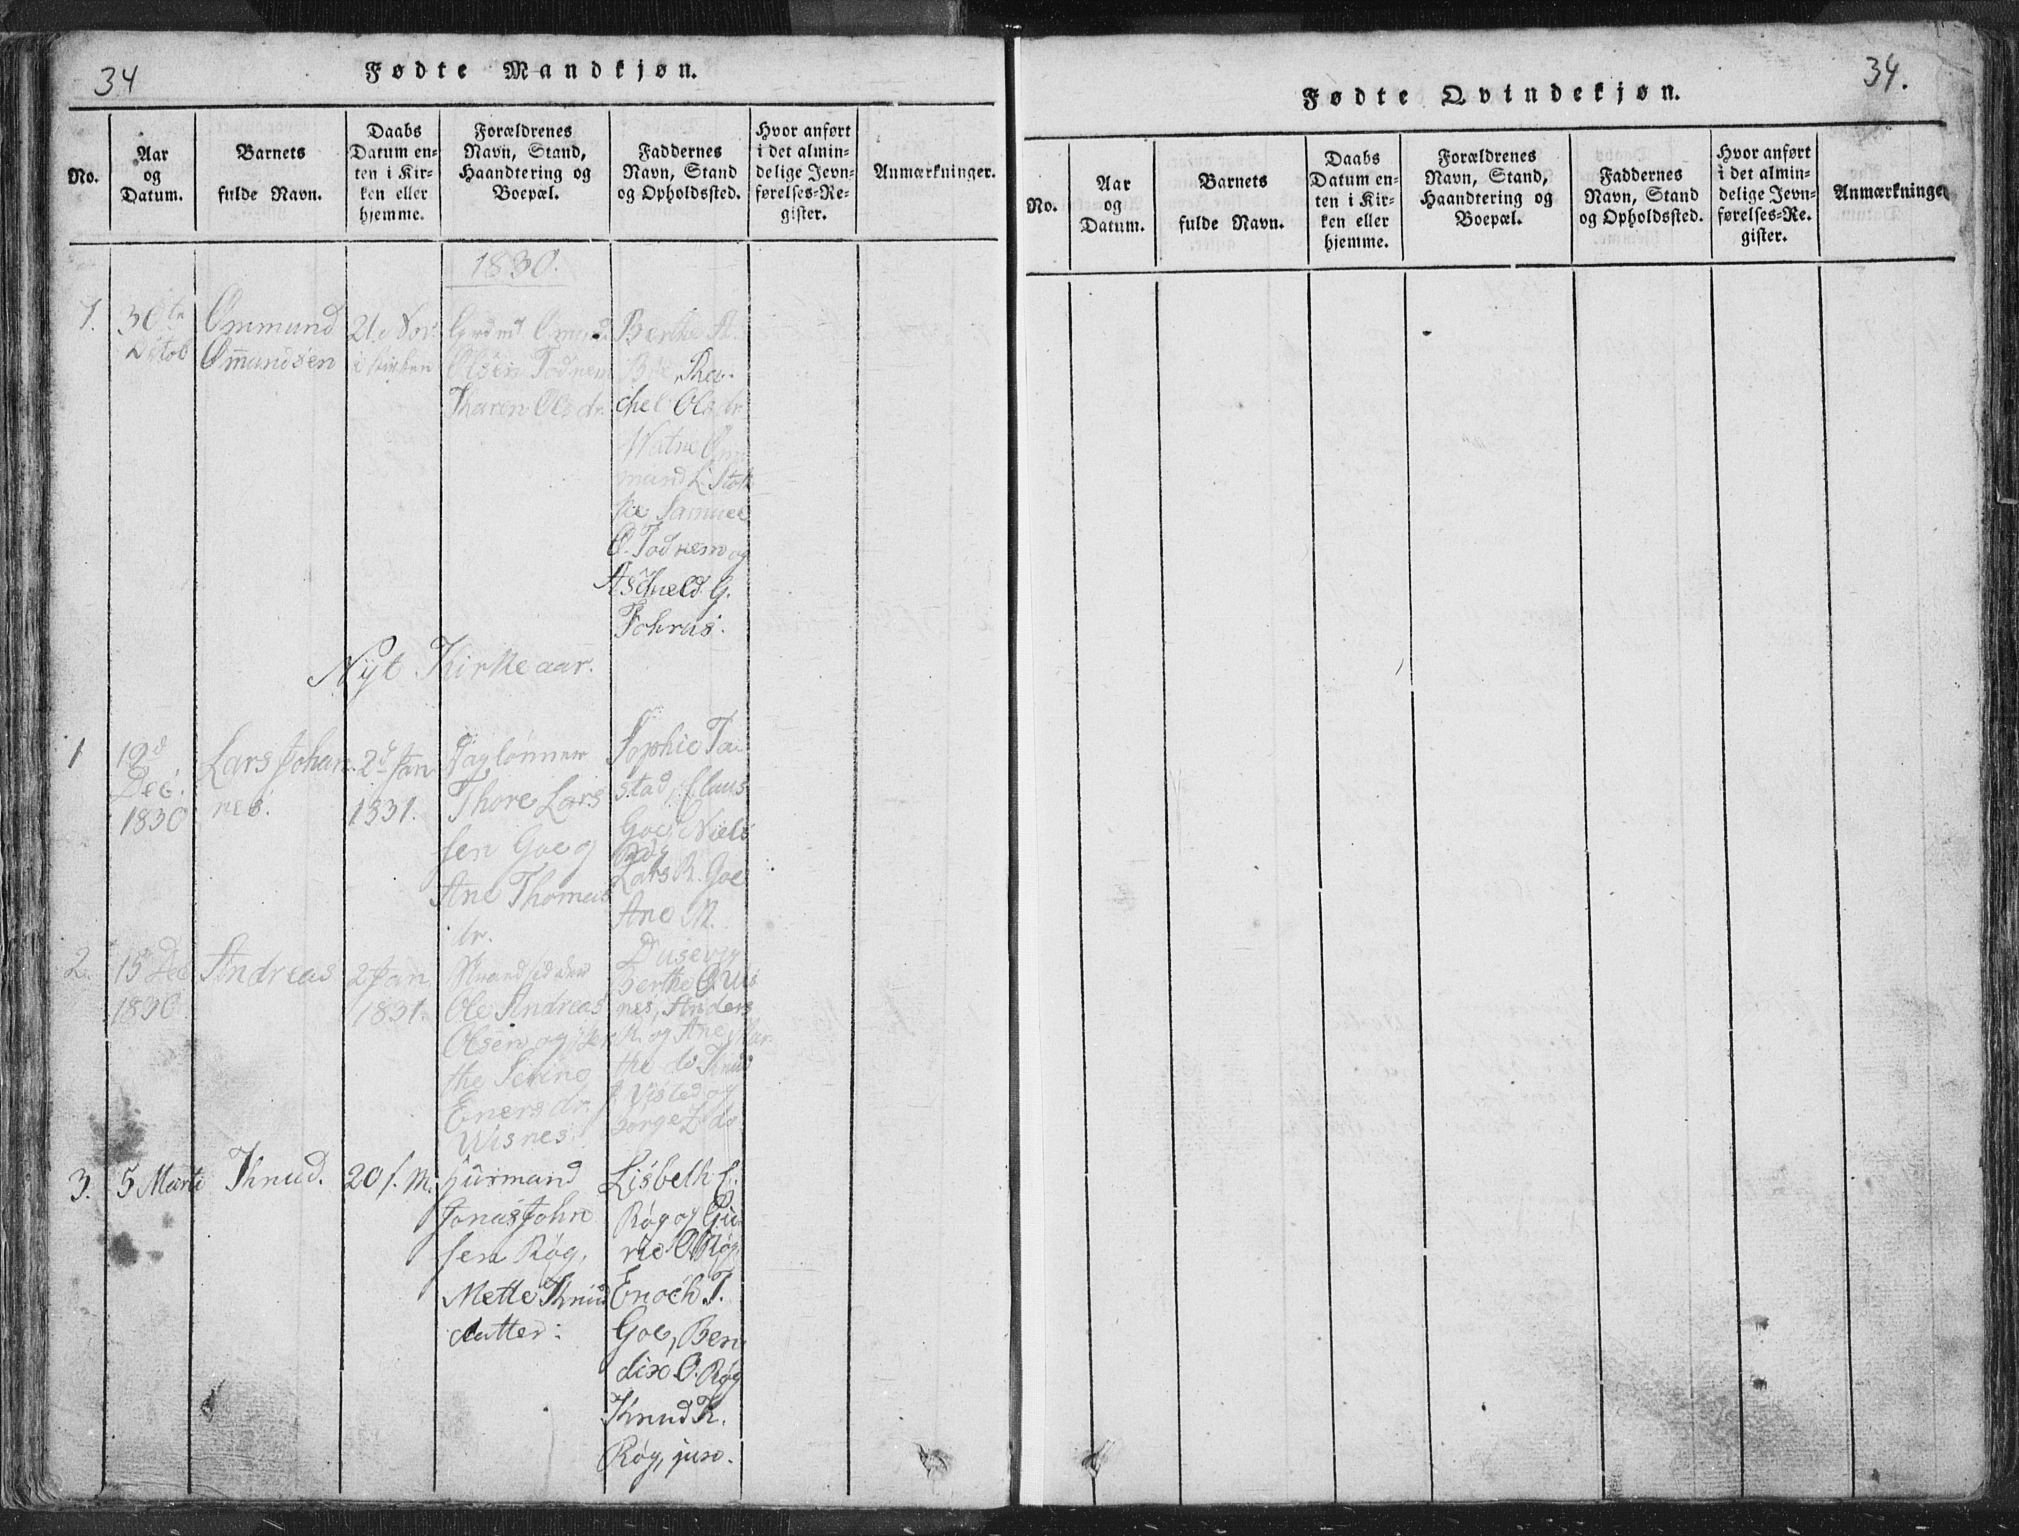 34
Fødte Mandkjøn.
No.
Aar
og
Datum.
Barnets
fulde Navn.
Daabs
Datum en-
ten i Kir-
ken eller
hjemme.
Forældrenes
Navn, Stand,
Haandtering og
Boepæl.
Faddernes
Navn, Stand
og Opholdssted.
Hvor anført
i det almin-
delige Jevn-
førelses-Re-
gister.
Anmærkninger.
1830.
7.
30te
Octob
Ommund
Om̄undsen
21. Nov.
i kirken
Grdmd
Olsen Todnem
Karen Olsdr.
Berthe A.
Bøe, Ra-
chel Olsdr
Watne Om-
mund L. Stok-
ke Samuel
O. Todnem og
Aschield G.
Nyt Kirkeaar.
1
19d
Dec.
1830
Lars Johan-
nes.
2d Jan
1831.
Daglønner
Thore Lars
sen Goe og
Ane Thomas
dr.
Sophie Ta-
stad, Claus
Goe, Niels
Lars R. Goe
Ane M.
Dusevig
2.
15 Dec
1830
Andreas
2 Jan.
1831.
Strandsidder
Ole Andreas
Olsen og
the Serine
Enersdr.
Wisnes.
Berthe O. Vis
nes, Anders
R. og Ane Mar
the do Knud
J. Visted og
Børge L. do
3.
5 Marti
Knud.
20 f. M.
Huurmand
Jonas John
sen Røg,
Mette Knud
datter:
Lisbeth
Røg og Gu-
rie O. Røg
Enoch T.
Goe, Ben
dix O. Røg
Knud K.
Røg, jun.
34.
Fødte Qvindekjøn.
No.
Aar
og
Datum.
Barnets
fulde Navn.
Daabs
Datum en-
ten i Kir-
ken eller
hjemme.
Forældrenes
Navn, Stand,
Haandtering og
Boepæl.
Faddernes
Navn, Stand
og Opholdssted.
Hvor anført
i det almin-
delige Jevn-
førelses-Re.
gister.
Anmærkninge